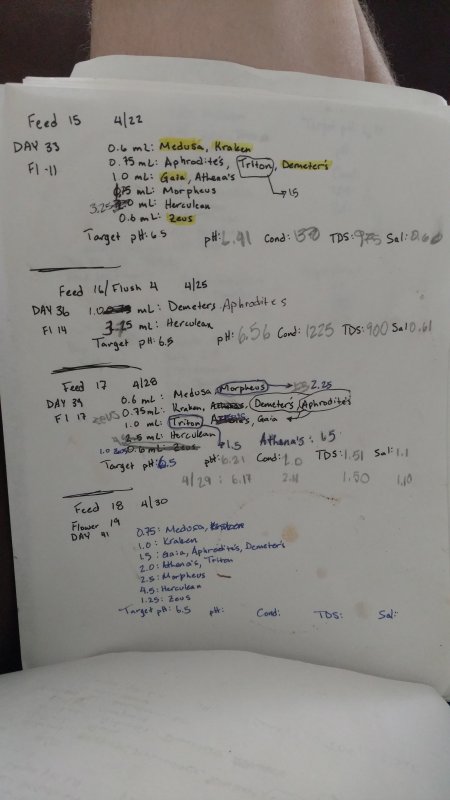 Feed 15 4/22
DAY 33 0.6 mL: Medusa, Kraken
Fl-11 0.75 mL: Aphrodite's, Triton, Demeter's
1.0 mL: Gaia, Athena's 1.5
mL: Morpheus
3.25 mL: Herculean
0.6 mL: Zeus
Target pH: 6.5 pH: 6.41 Cond: TDS: 975 Sal: 0.6
Feed 16/Flush 4 4/25
DAY 36 1.0 mL: Demeters Aphrodites
Fl 14 mL: Herculean
Target pH: 6.5 pH: 6.56 Cond: 1225 TDS: 900 Sal 0.61
Feed 17 4/28
DAY 39 0.6 mL: Medusa, Morpheus 2.25
Fl 17 0.75 mL: Kraken, Demeter's, Aphrodite's
1.0 mL: Triton, Gaia
2.5 mL: Herculean 1.5 Athena's: 1.5
1.0 Zeus 0.6 mL: Zeus
Target pH: 6.5 pH: 6.21 Cond: 2.0 TDS: 1.51 Sal: 1.1
4/29: 6.17 1.50 1.10
Feed 18 4/30
Flower 19
DAY 41 0.75: Medusa, Kraken
1.0: Kraken
1.5: Gaia, Aphrodite's, Demeter's
2.0: Athena's, Triton
2.5: Morpheus
4.5: Herculean
1.25: Zeus
Target pH: 6.5 pH: Cond: TDS: Sal: